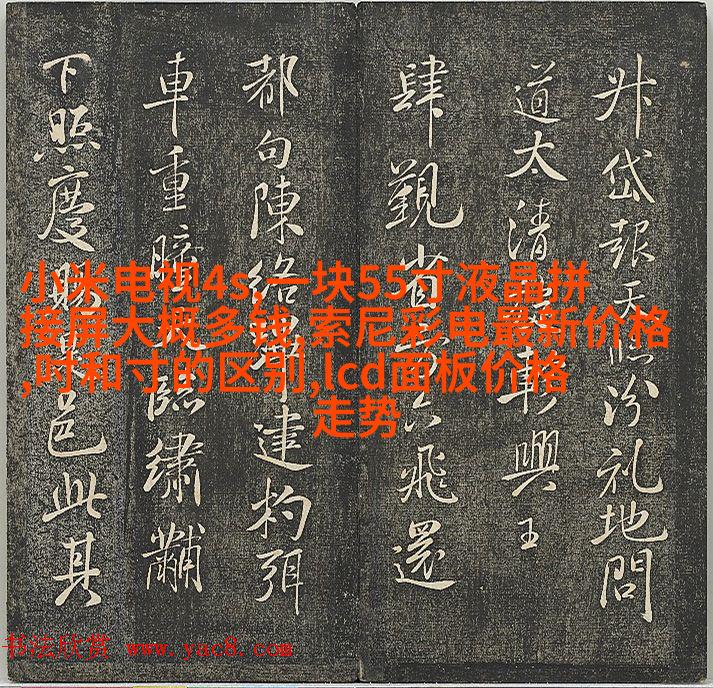 升岱報天臨汾礼地問
道太清興王
肆覲省方六飛還
都句陳絡建杓弭
車重臨繡黼
下照慶賜邑此其
小米电视4s,一块55寸液晶拼
接屏大概多钱,索尼彩电最新价格
,吋和寸的区别,lcd面板价格
走势
书法欣赏 www.yac8.com